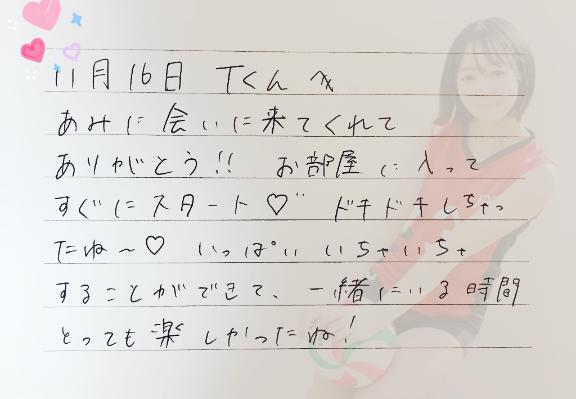 11月16日 Tくんへ
あみに会いに来てくれて
ありがとう!! お部屋に入って
すぐにスタート♡" ドキドキしちゃっ
たね〜♡ いっぱいいちゃいちゃ
することができて、一緒にいる時間
とっても楽しかったね!